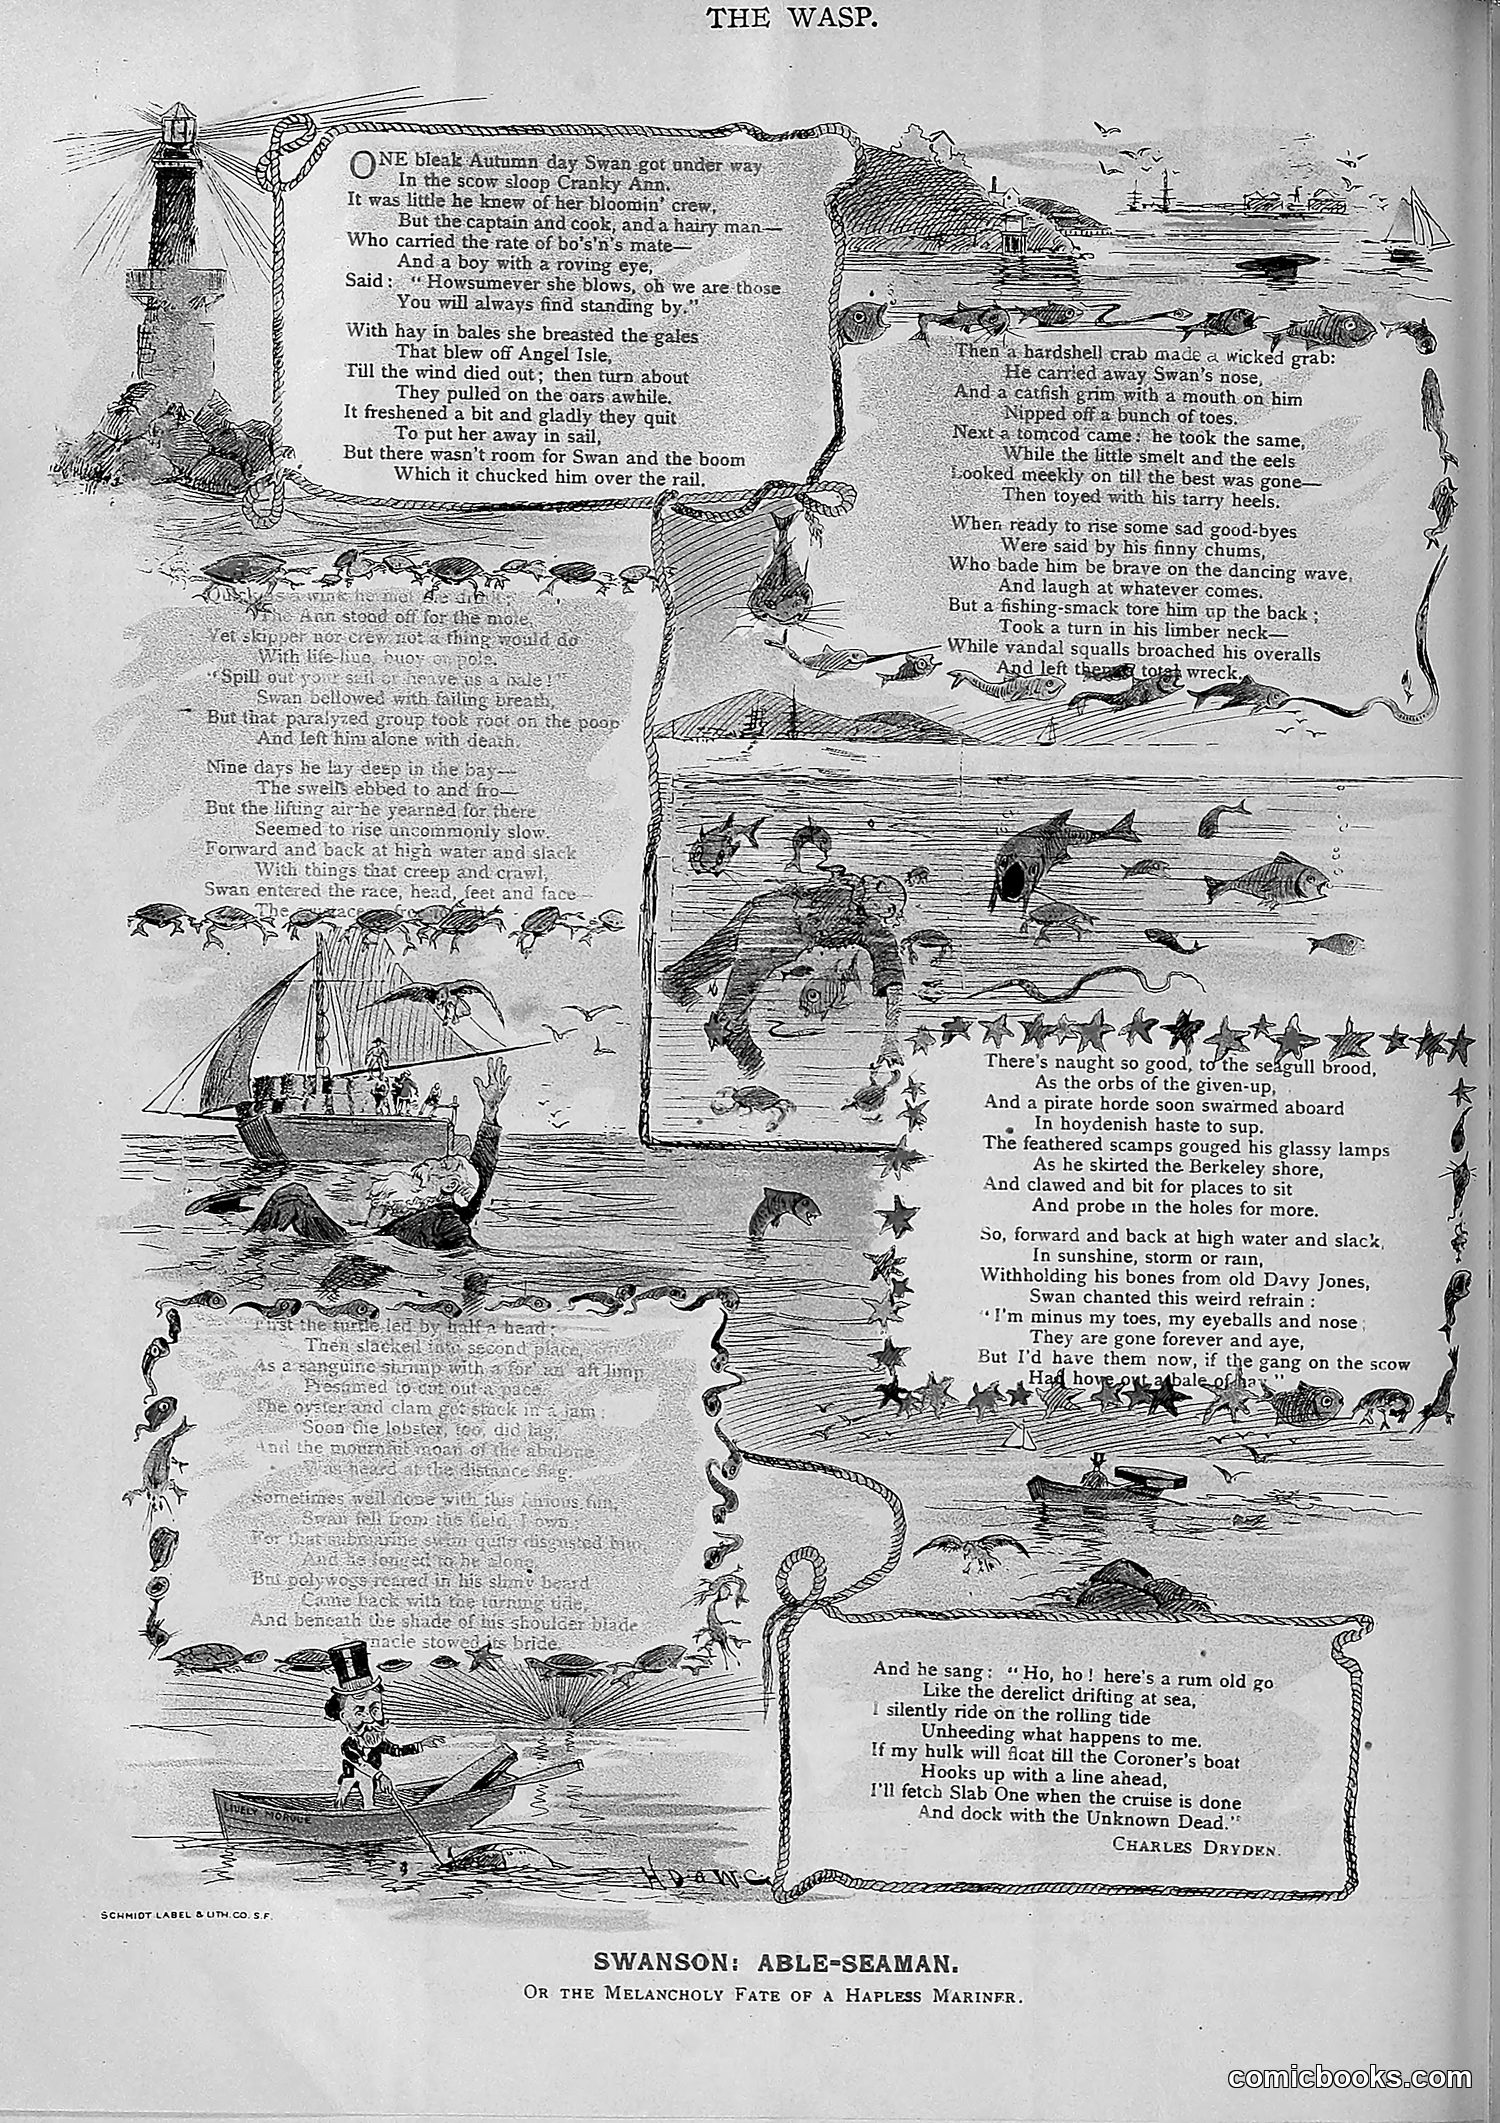 THE WASP.
ONE bleak Autumn day Swan got under way
In the scow sloop Cranky Ann.
It was little he knew of her bloomin' crew,
But the captain and cook, and a hairy man—
Who carried the rate of bo's'n's mate—
And a boy with a roving eye,
Said: "Howsumever she blows, oh we are those
You will always find standing by."
With hay in bales she breasted the gales
That blew off Angel Isle,
Till the wind died out; then turn about
They pulled on the oars awhile.
It freshened a bit and gladly they quit
To put her away in sail,
But there wasn't room for Swan and the boom
Which it chucked him over the rail.
Quick as a wink he met the drink;
The Ann stood off for the mole,
Yet skipper nor crew not a thing would do
With life-line, buoy or pole.
"Spill out your sail or heave us a bale!"
Swan bellowed with failing breath,
But that paralyzed group took root on the poop
And left him alone with death.
Nine days he lay deep in the bay—
The swells ebbed to and fro—
But the lifting air he yearned for there
Seemed to rise uncommonly slow.
Forward and back at high water and slack
With things that creep and crawl,
Swan entered the race, head, feet and face—
The
First the turtle led by half a head;
Then slacked into second place,
As a sanguine shrimp with a for' an' aft limp
Presumed to cut out a pace.
The oyster and clam got stuck in a jam;
Soon the lobster, too, did lag,
And the mournful moan of the abalone
Was heard at the distance flag.
Sometimes well done with this furious fun,
Swan fell from the field, I own.
For that submarine swim quite disgusted him,
And he longed to be along.
But polywogs reared in his slimy beard
Came back with the turning tide,
And beneath the shade of his shoulder blade
rnacle stowed its bride.
Then a hardshell crab made a wicked grab:
He carried away Swan's nose,
And a catfish grim with a mouth on him
Nipped off a bunch of toes.
Next a tomcod came: he took the same,
While the little smelt and the eels
Looked meekly on till the best was gone—
Then toyed with his tarry heels.
When ready to rise some sad good-byes
Were said by his finny chums,
Who bade him be brave on the dancing wave,
And laugh at whatever comes.
But a fishing-smack tore him up the back;
Took a turn in his limber neck—
While vandal squalls broached his overalls
And left them a total wreck.
There's naught so good, to the seagull brood,
As the orbs of the given-up,
And a pirate horde soon swarmed aboard
In hoydenish haste to sup.
The feathered scamps gouged his glassy lamps
As he skirted the Berkeley shore,
And clawed and bit for places to sit
And probe in the holes for more.
So, forward and back at high water and slack,
In sunshine, storm or rain,
Withholding his bones from old Davy Jones,
Swan chanted this weird refrain:
"I'm minus my toes, my eyeballs and nose;
They are gone forever and aye,
But I'd have them now, if the gang on the scow
Had hove out a bale of hay."
And he sang: "Ho, ho! here's a rum old go
Like the derelict drifting at sea,
I silently ride on the rolling tide
Unheeding what happens to me.
If my hulk will float till the Coroner's boat
Hooks up with a line ahead,
I'll fetch Slab One when the cruise is done
And dock with the Unknown Dead."
CHARLES DRYDEN.
LIVELY MORGUE
SCHMIDT LABEL & LITH. CO. S.F.
SWANSON: ABLE-SEAMAN.
OR THE MELANCHOLY FATE OF A HAPLESS MARINER.
comicbooks.com